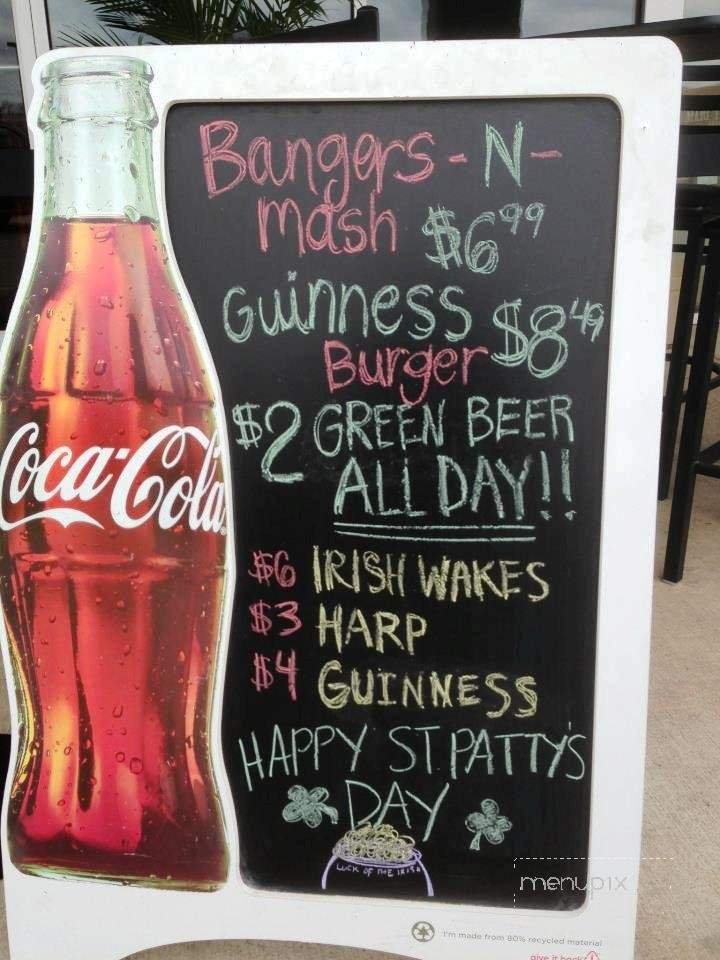 Bangers-N-
mash $6.99
Guinness $8.49
Burger
$2 GREEN BEER
ALL DAY!!
$6 IRISH WAKES
$3 HARP
$4 GUINNESS
HAPPY ST. PATTY'S
DAY
LUCK OF THE IRISH
Coca-Cola
menupix
I'm made from 80% recycled material
give it back